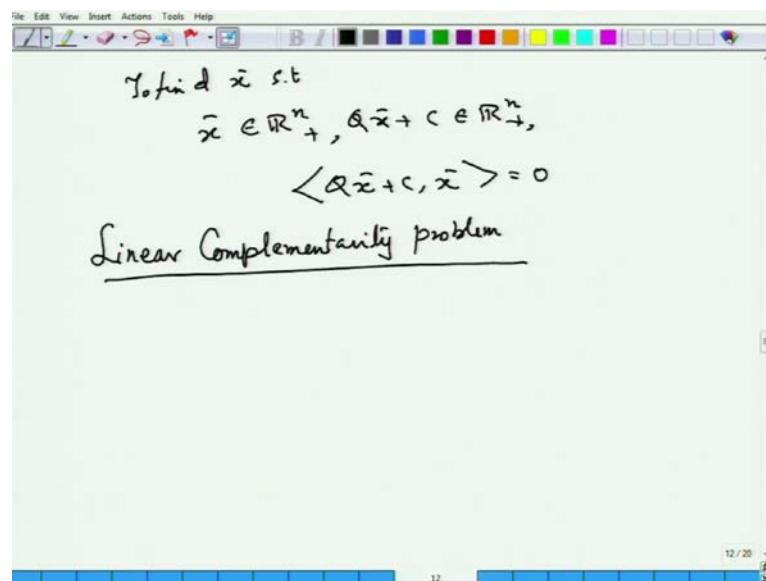 File Edit View Insert Actions Tools Help
B I
To find x̄ s.t
x̄ ∈ ℝⁿ₊, Qx̄ + c ∈ ℝⁿ₊,
<Qx̄ + c, x̄> = 0
Linear Complementarity problem
12 / 20
12